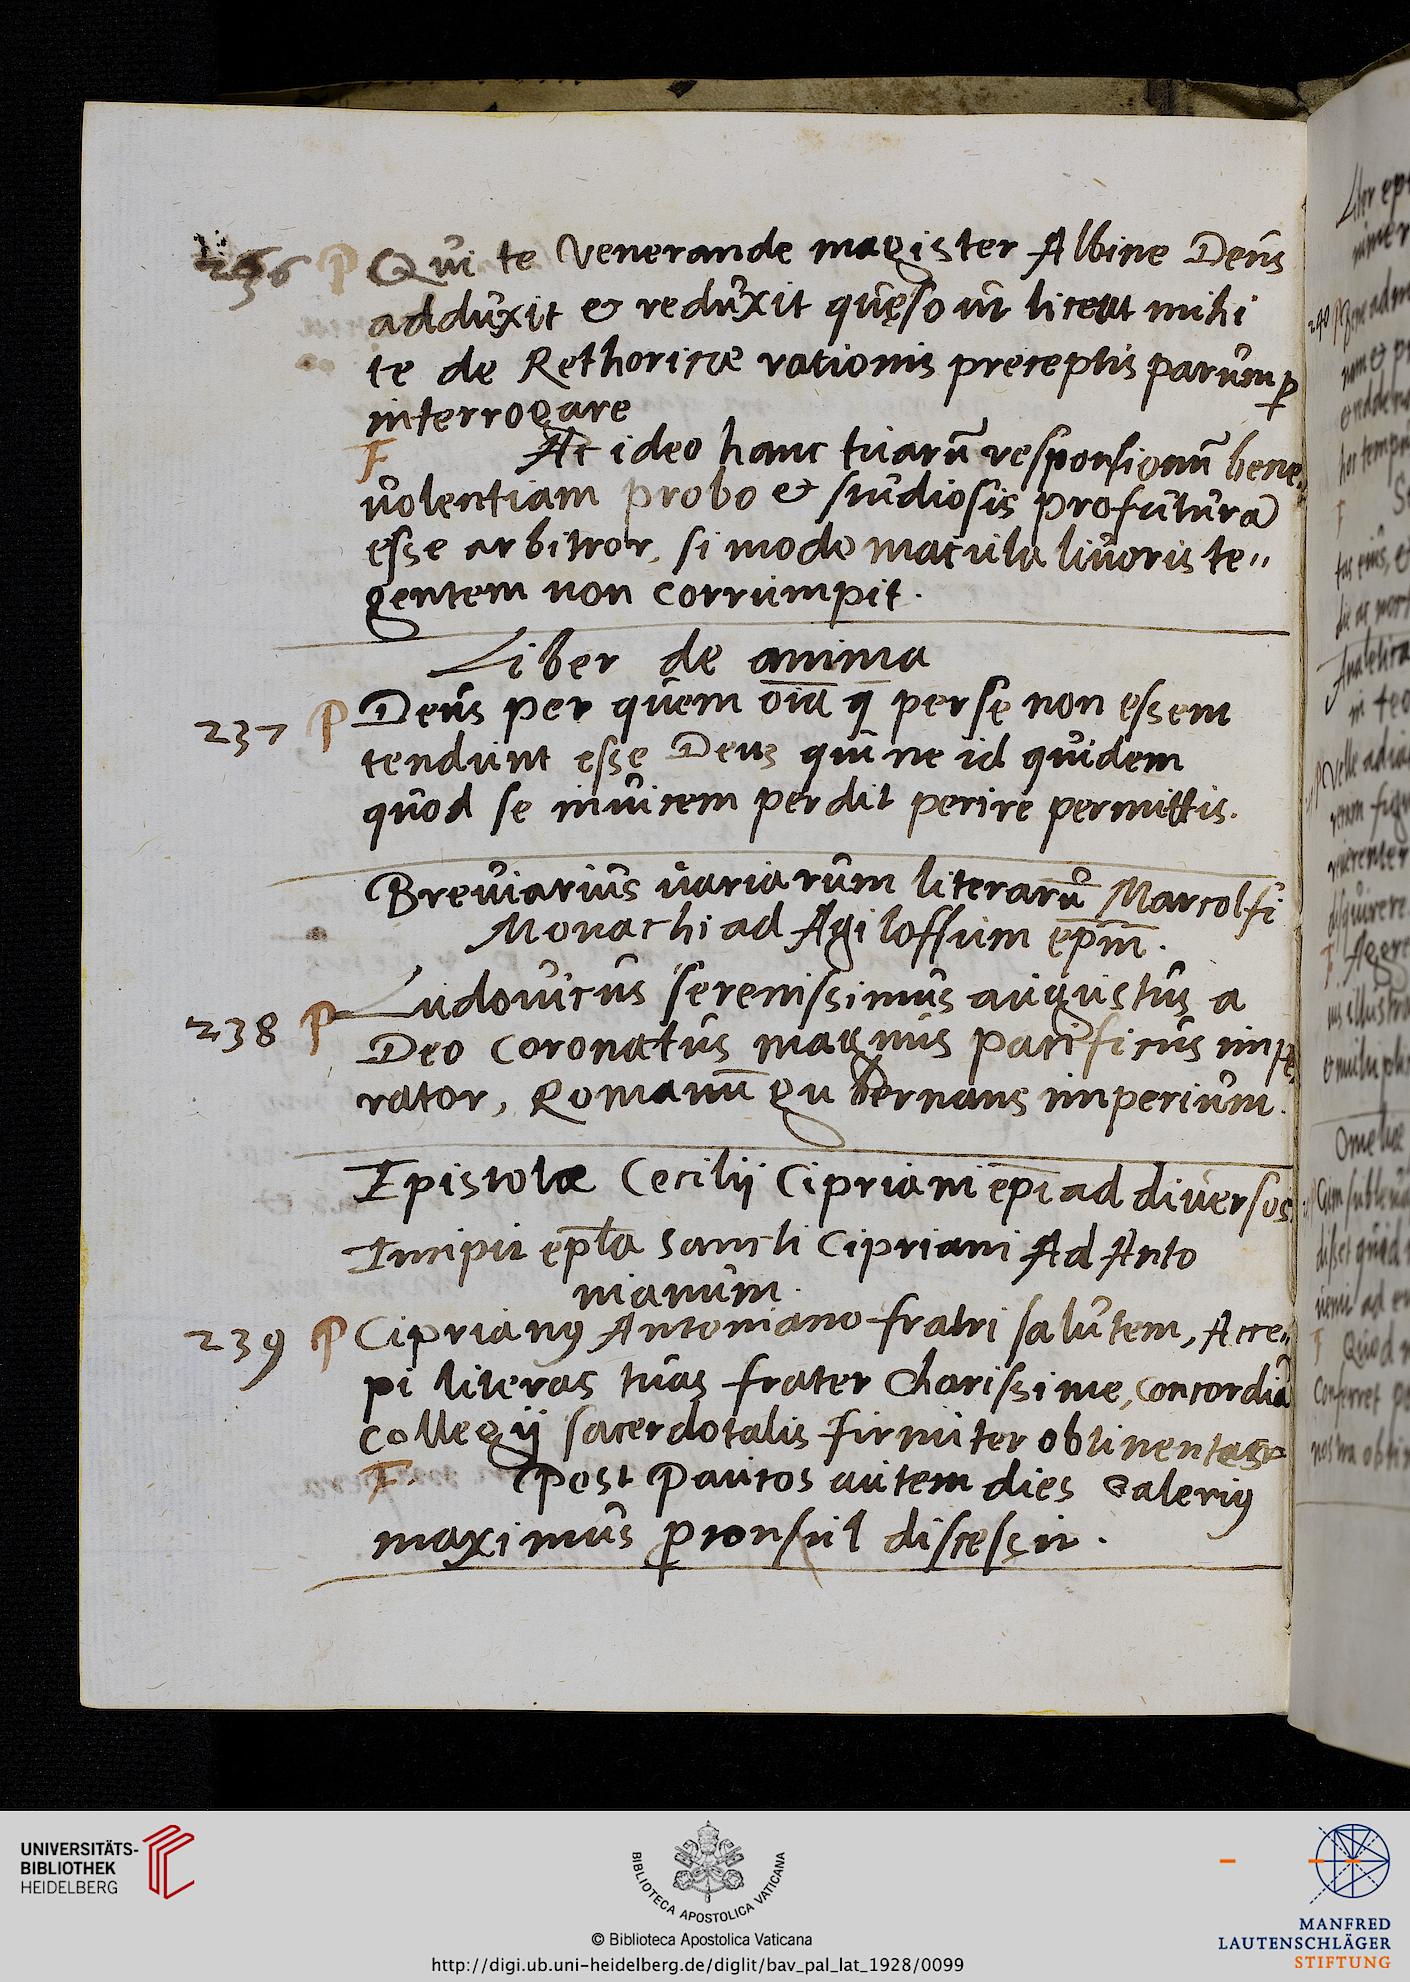 236 P Qui te Venerande magister Albine Deus
adduxit et reduxit quęso ut liceat mihi
te de Rethoricæ rationis preceptis parump
interrogare
F Ac ideo hanc tuarū responsionū bene„
volentiam probo et studiosis profutura
esse arbitror, si modo macula livoris te„
gentem non corrumpit.
Liber de anima
237 P Deus per quem oīa q̄ per se non essent
tendunt esse Deus qui ne id quidem
quod se invicem perdit perire permittis.
Breviarius variarum literarū Marcolfi
Monachi ad Agiloffum ep̄m.
238 P Ludovicus serenissimus augustus a
Deo coronatus magnus pacificus impe„
rator, Romanū gubernans imperium.
Epistolæ Cecilij Cipriani ep̄i ad diversos
Incipit ep̄la Sancti Cipriani Ad Anto
nianum.
239 P Ciprianꝰ Antoniano fratri salutem, Acce„
pi literas tuas frater charissime, concordiā
collegij sacerdotalis firmiter obtinentes
F Post Paucos autem dies Galeriꝰ
maximus ꝓconsul discessit.
240
UNIVERSITÄTS-
BIBLIOTHEK
HEIDELBERG
BIBLIOTECA APOSTOLICA VATICANA
© Biblioteca Apostolica Vaticana
http://digi.ub.uni-heidelberg.de/diglit/bav_pal_lat_1928/0099
MANFRED
LAUTENSCHLÄGER
STIFTUNG